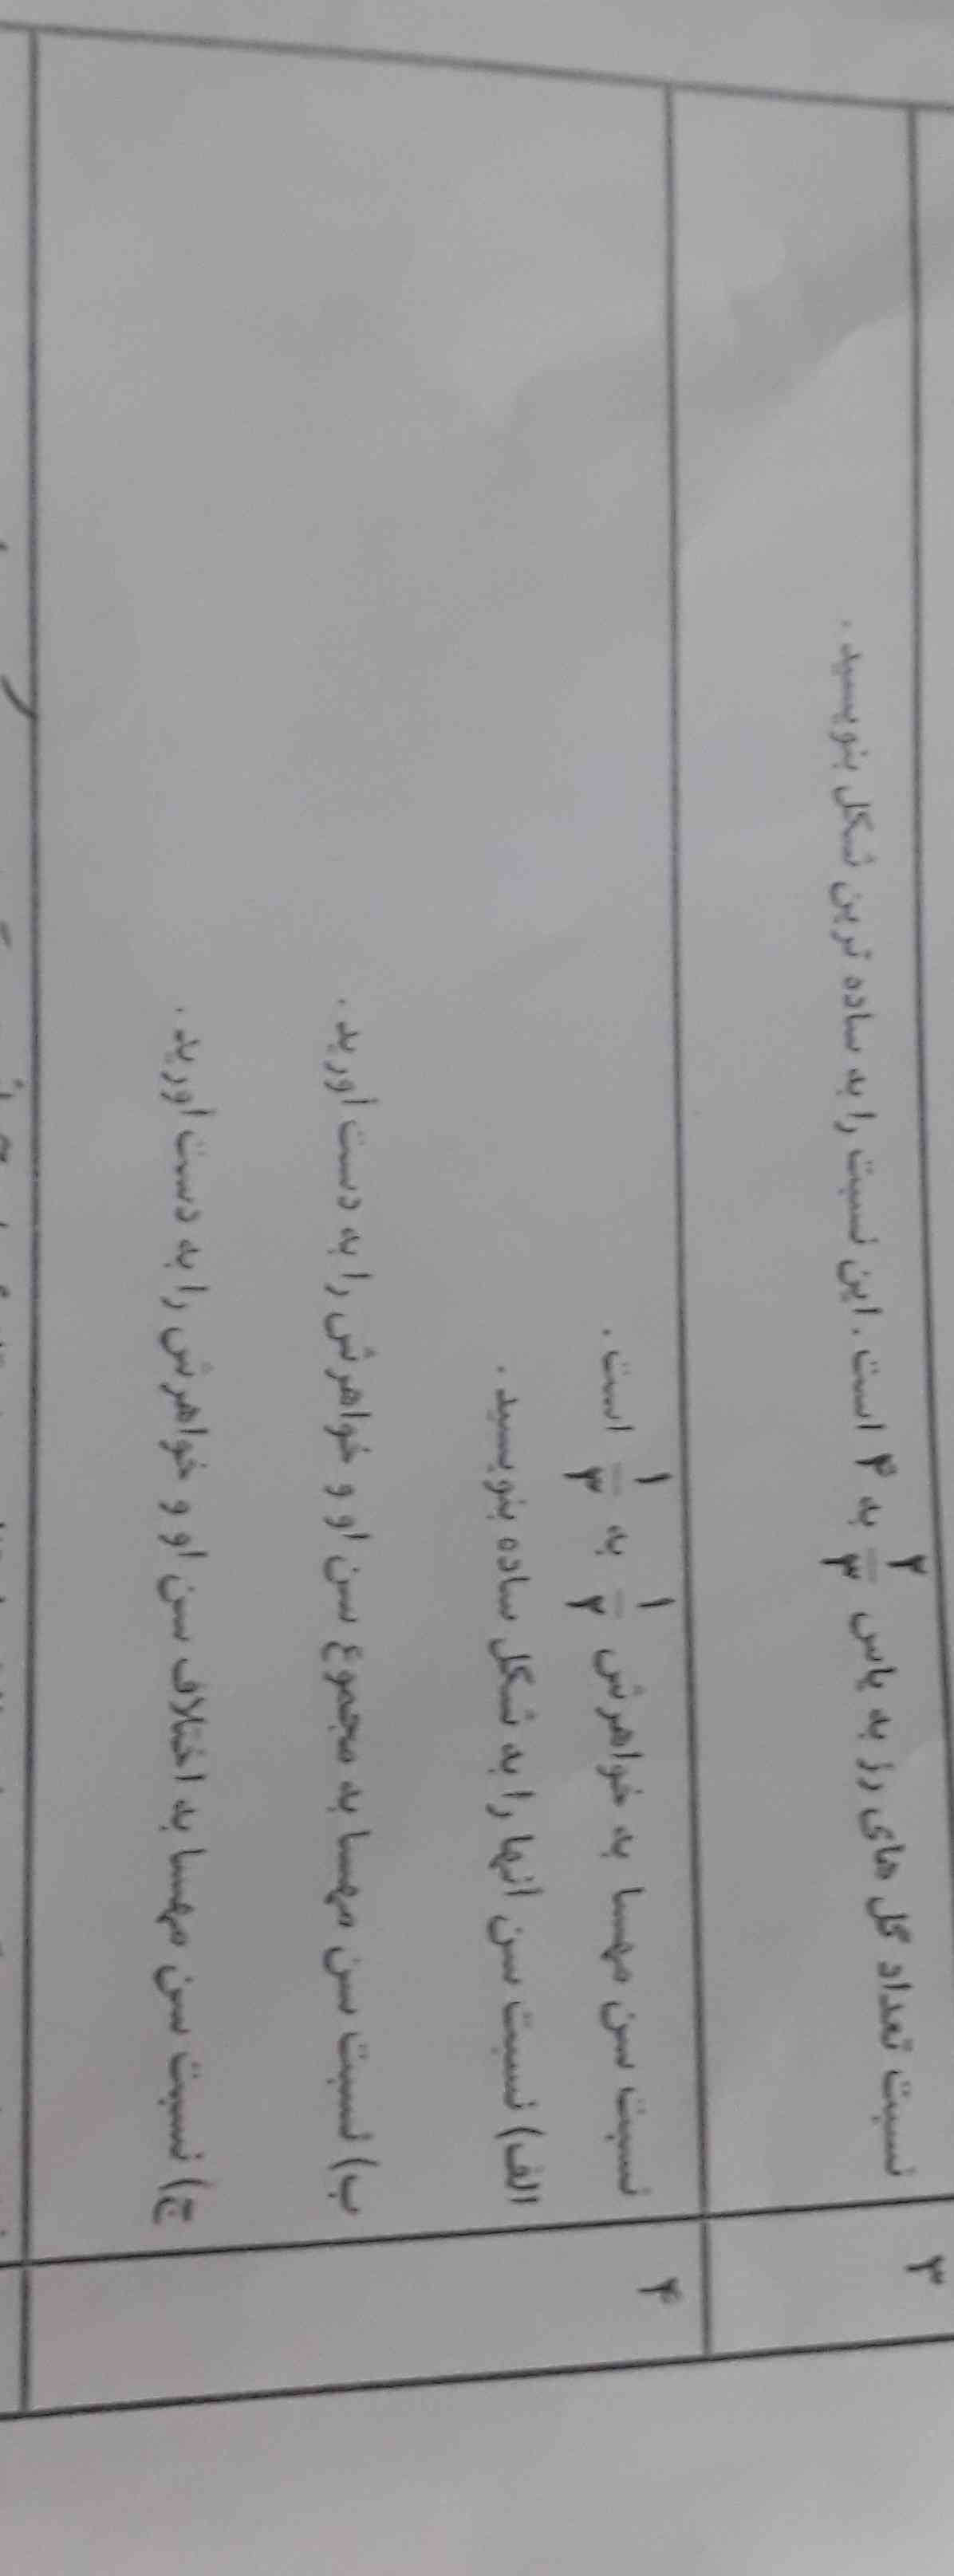 ۳
نسبت تعداد گل های رز به یاس ۲/۳ به ۴ است. این نسبت را به ساده ترین شکل بنویسید.
۴
نسبت سن مهسا به خواهرش ۱/۲ به ۱/۳ است.
الف) نسبت سن آنها را به شکل ساده بنویسید.
ب) نسبت سن مهسا به مجموع سن او و خواهرش را به دست آورید.
ج) نسبت سن مهسا به اختلاف سن او و خواهرش را به دست آورید.